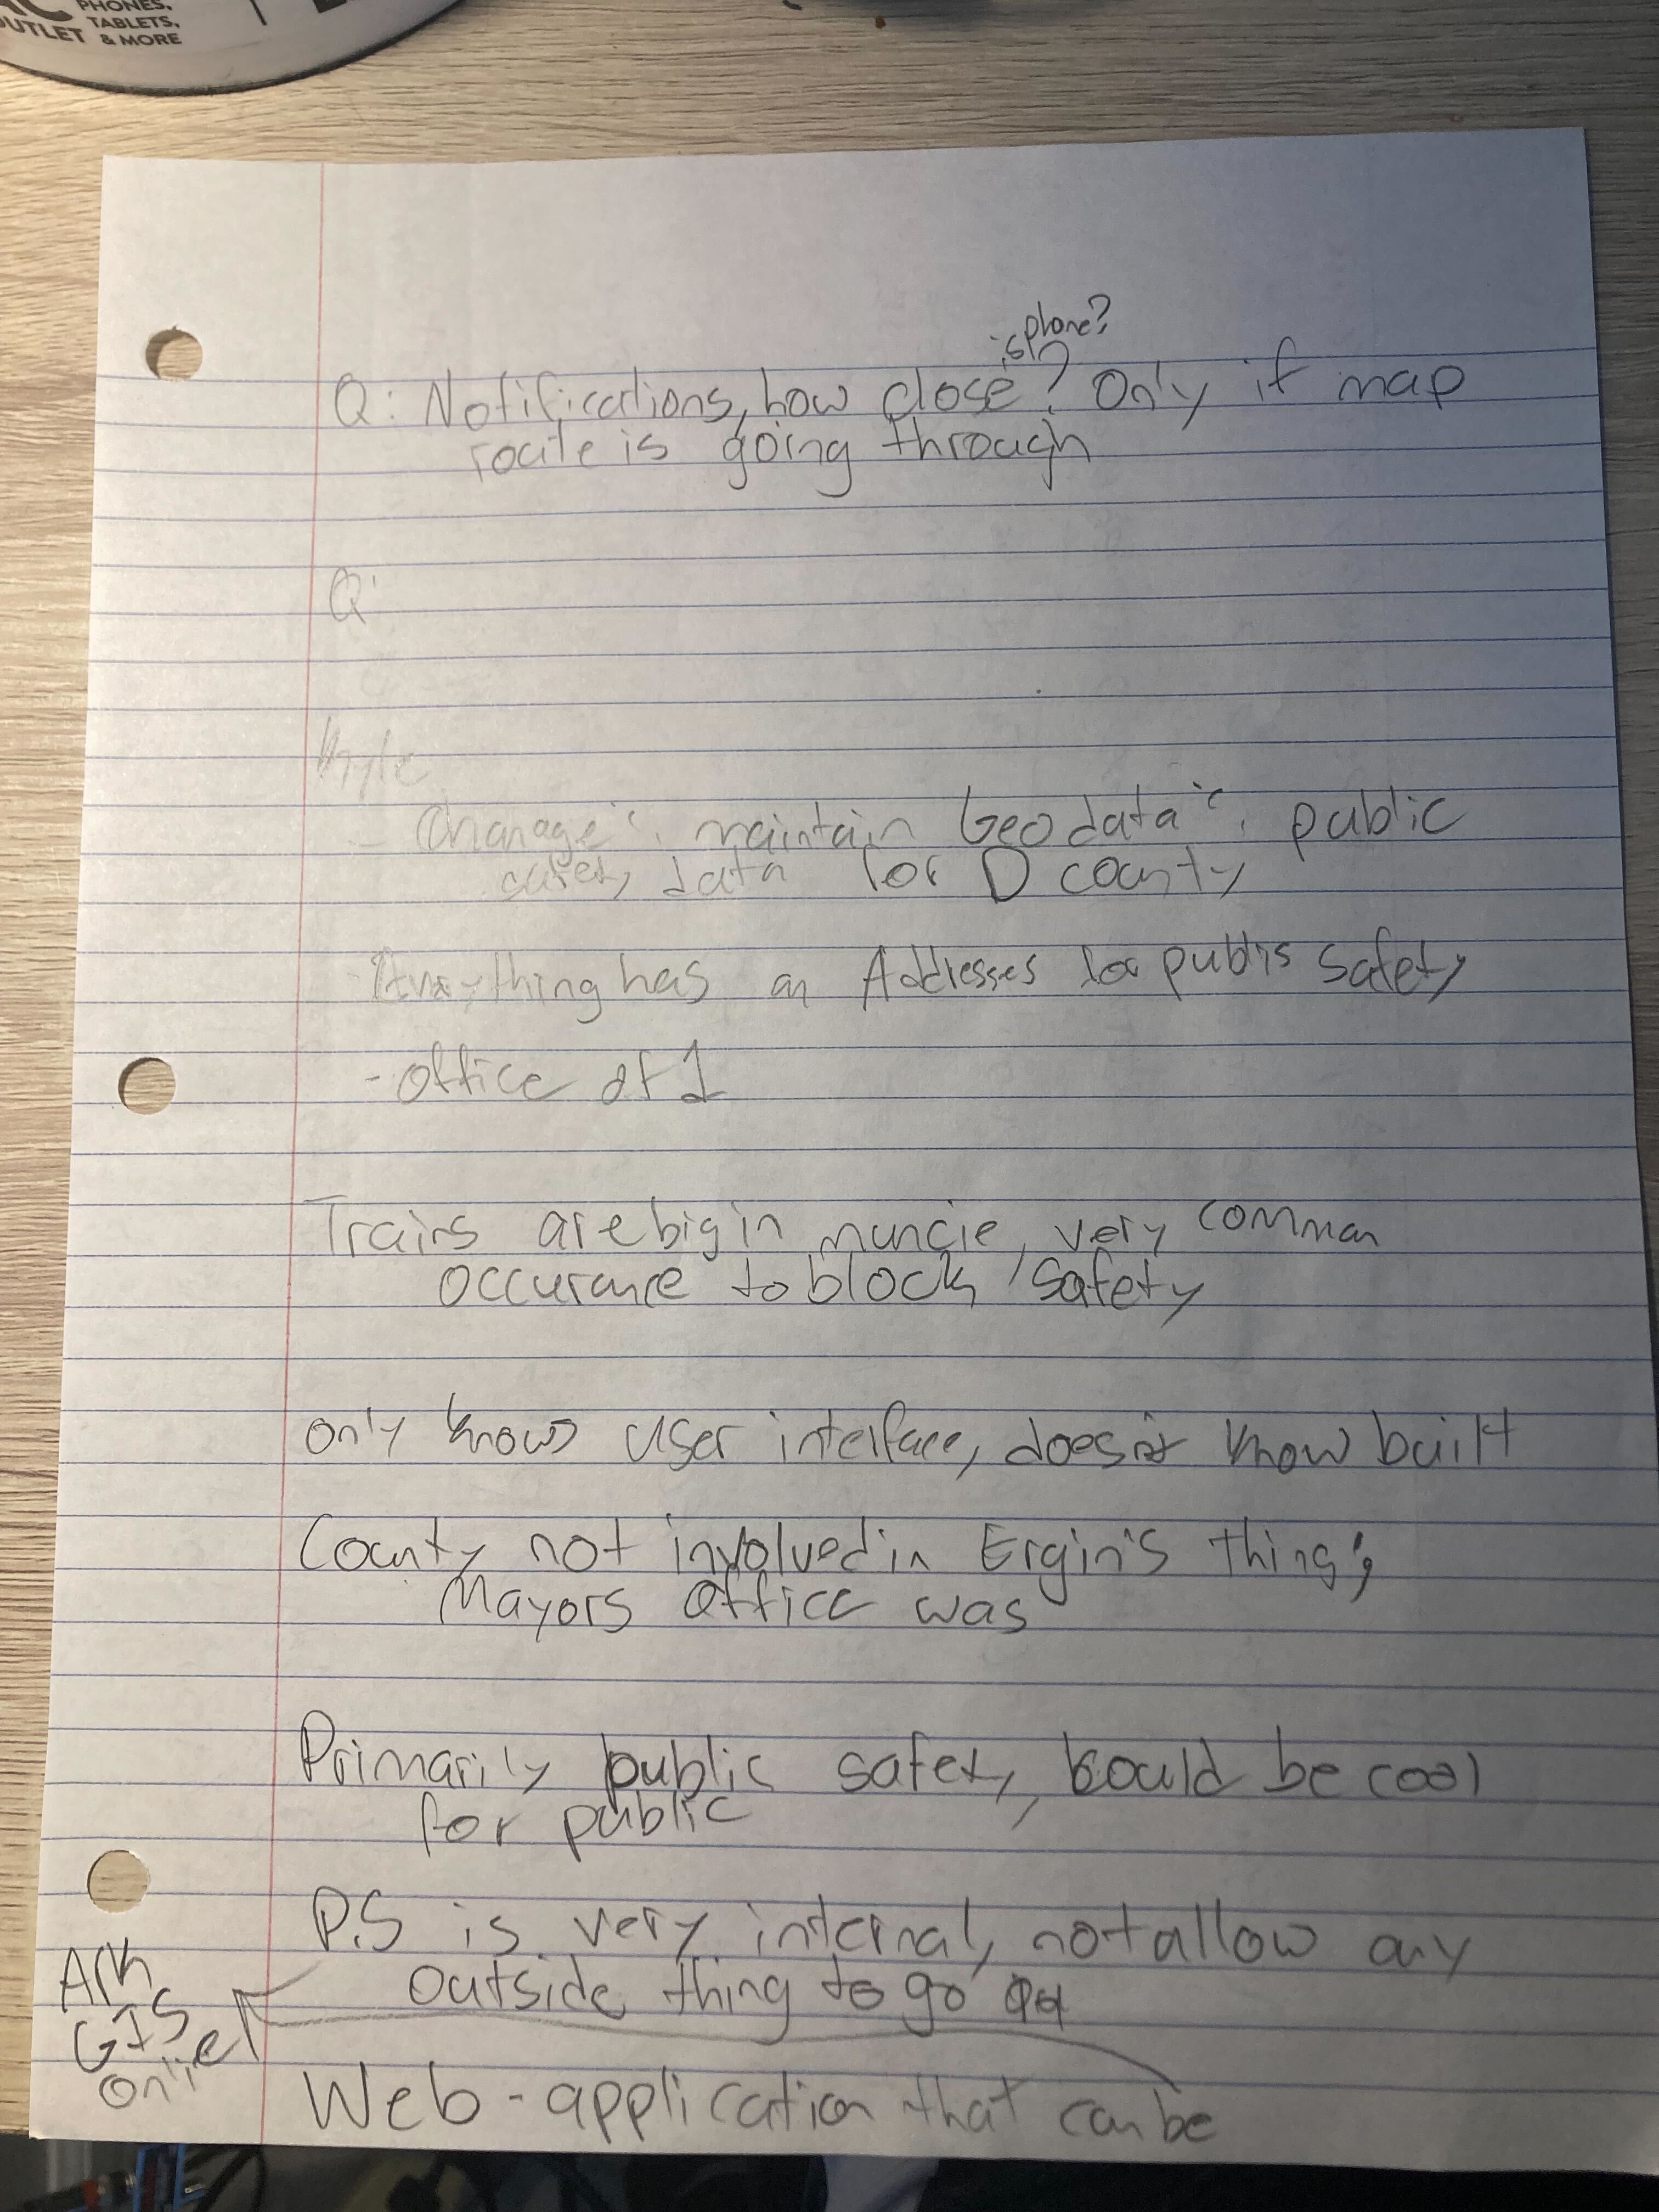 PHONES,
OUTLET TABLETS,
& MORE
is phone?
Q: Notifications, how close? Only if map
route is going through
Q:
Kyle
- manage & maintain Geodata & public
safety data for D county
- Everything has an Addresses for publis safety
- office of 1
Trains are big in muncie, very common
occurance to block safety
only knows user interface, doesn't know built
County not involved in Ergin's thing;
Mayors office was
Primarily public safety, could be cool
for public
P.S is very internal, not allow any
outside thing to go
Ark
GIS
Online
Web-application that can be